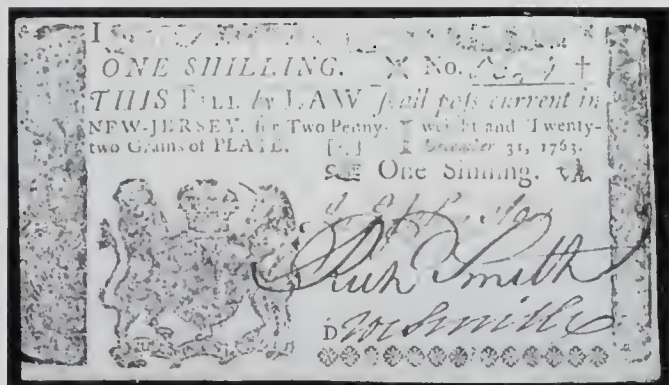 ONE SHILLING. No.
THIS BILL by LAW shall pass current in
NEW-JERSEY, for Two Penny-weight and Twenty-
two Grains of PLATE. December 31, 1763.
One Shilling.
Rich Smith
D